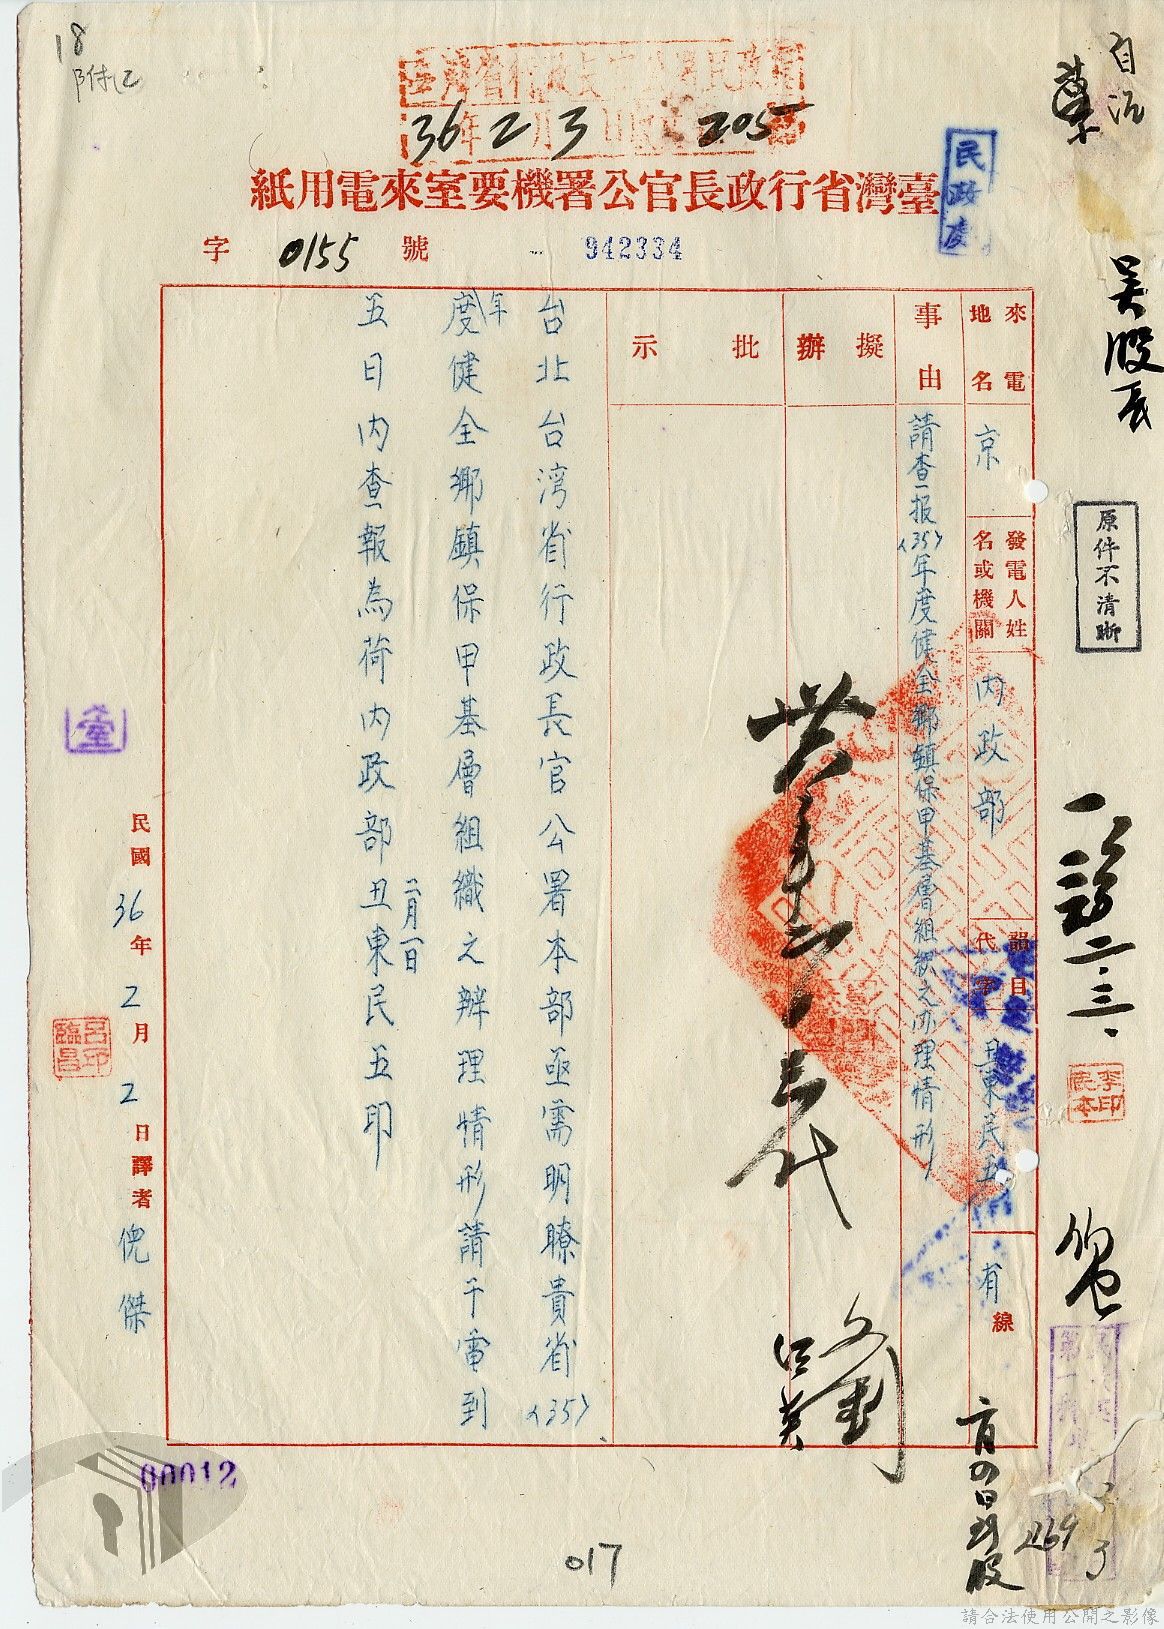 18
附乙
36 年 2 月 3 日 205
臺灣省行政長官公署機要室來電用紙
民政處
字 0155 號
942334
來電地名
京
發電人姓名或機關
內政部
韻目代字
丑東民五
有線
事由
請查报〈35〉年度健全鄉鎮保甲基層組织之办理情形
擬辦
批示
台北台湾省行政長官公署本部亟需明瞭貴省〈35〉
年度健全鄉鎮保甲基層組織之辦理情形請于電到
五日内查報為荷内政部丑東民五印
二月一日
民國36年2月2日譯者倪傑
呂臨昌印
臺
自治
吳股長
原件不清晰
二、三、
李印
00012
017
2269
請合法使用公開之影像